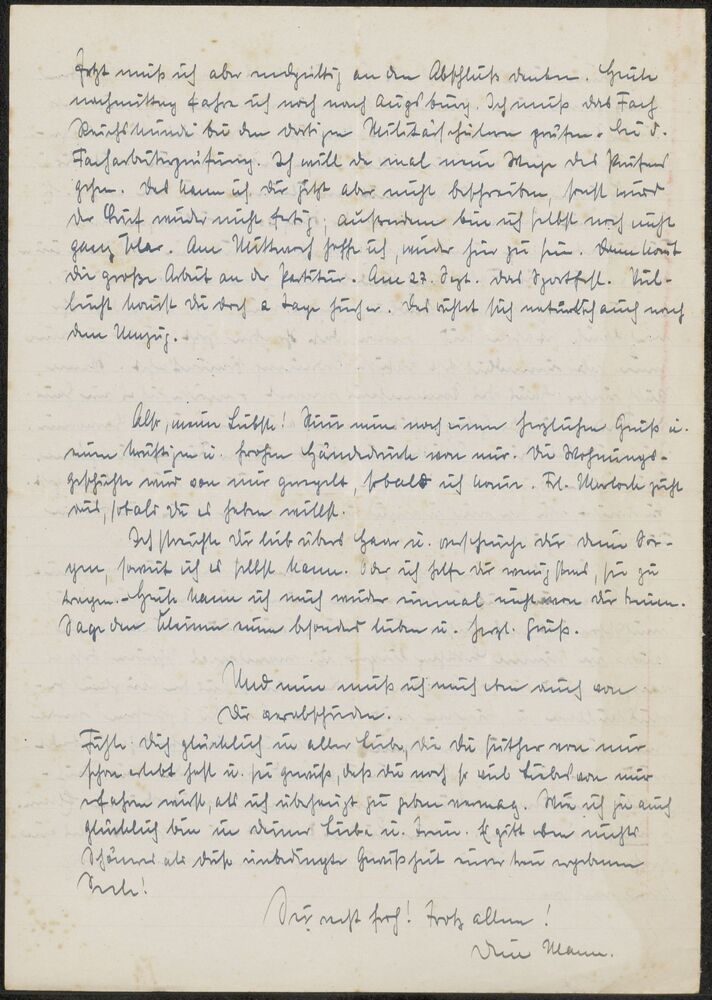 Jetzt muß ich aber endgültig an den Abschluß denken. Heute
nachmittag fahre ich noch nach Augsburg. Ich muß das Fach
Reichskunde bei den dortigen Militärschülern prüfen - bei d.
Facharbeiterprüfung. Ich will da mal neue Wege des Prüfens
gehen. Das kann ich Dir jetzt aber nicht beschreiben, sonst wird
der Brief wieder nicht fertig; außerdem bin ich selbst noch nicht
ganz klar. Am Mittwoch hoffe ich, wieder hier zu sein. Dann kommt
die große Arbeit an der Partitur. Am 27. Sept. das Sportfest. Viel-
leicht kommst Du doch 2 Tage früher. Das richtet sich natürlich auch nach
dem Umzug.
Also, meine Liebste! Nun nimm noch einen herzlichen Gruß u.
einen kräftigen u. frohen Händedruck von mir. Die Wohnungs-
geschichte wird von mir geregelt, sobald ich komme. Frl. zieht
aus, sobald Du es haben willst.
Ich streichle Dir lieb übers Haar u. verscheuche Dir Deine Sor-
gen, soweit ich es selbst kann. Oder ich helfe Dir wenigstens, sie zu
tragen. - Heute kann ich mich wieder einmal nicht von Dir trennen.
Sage den Kleinen einen besonders lieben u. herzl. Gruß.
Und nun muß ich mich eben auch von
Dir verabschieden.
Fühle Dich glücklich in aller Liebe, die Du seither von mir
schon erlebt hast u. sei gewiß, daß Du noch so viel Liebes von mir
erfahren wirst, als ich überhaupt zu geben vermag. Wie ich ja auch
glücklich bin in Deiner Liebe u. Treue. Es gibt eben nichts
Schöneres als diese unbedingte Gewißheit einer treu ergebenen
Seele!
Sei recht froh! Trotz allem!
Dein Mann.